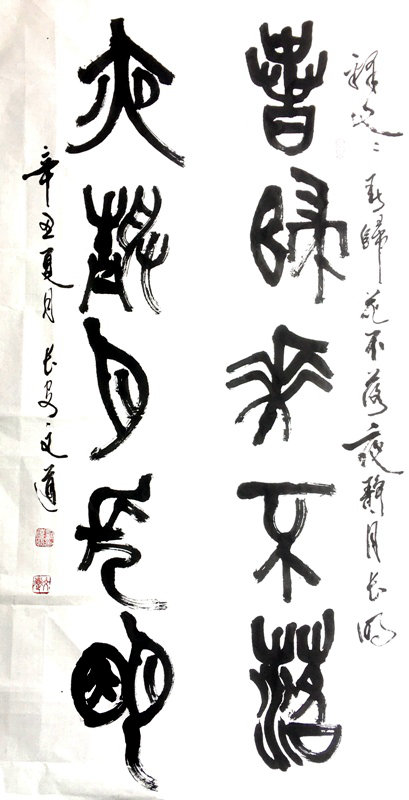 释文：春歸花不落夜靜月长明
春歸花不落
夜靜月長明
辛丑夏月长安文道